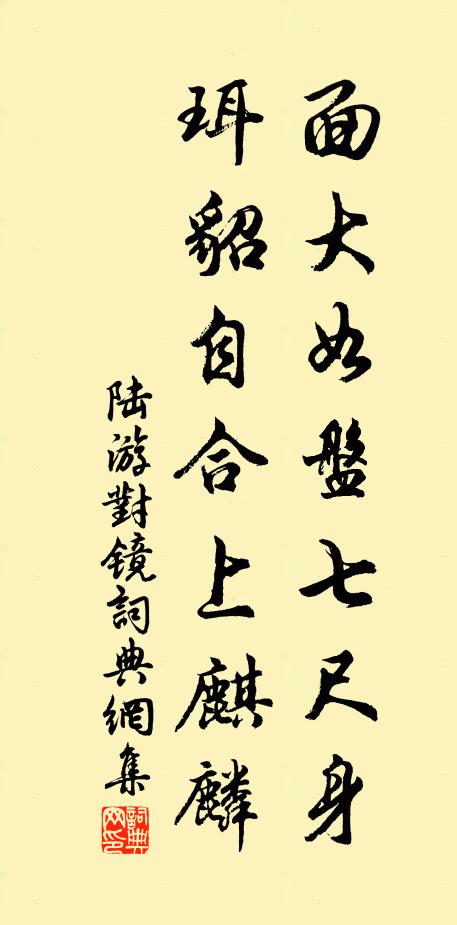 面大如盤七尺身
珥貂自合上麒麟
陆游對鏡詞典網集
詞典
网印